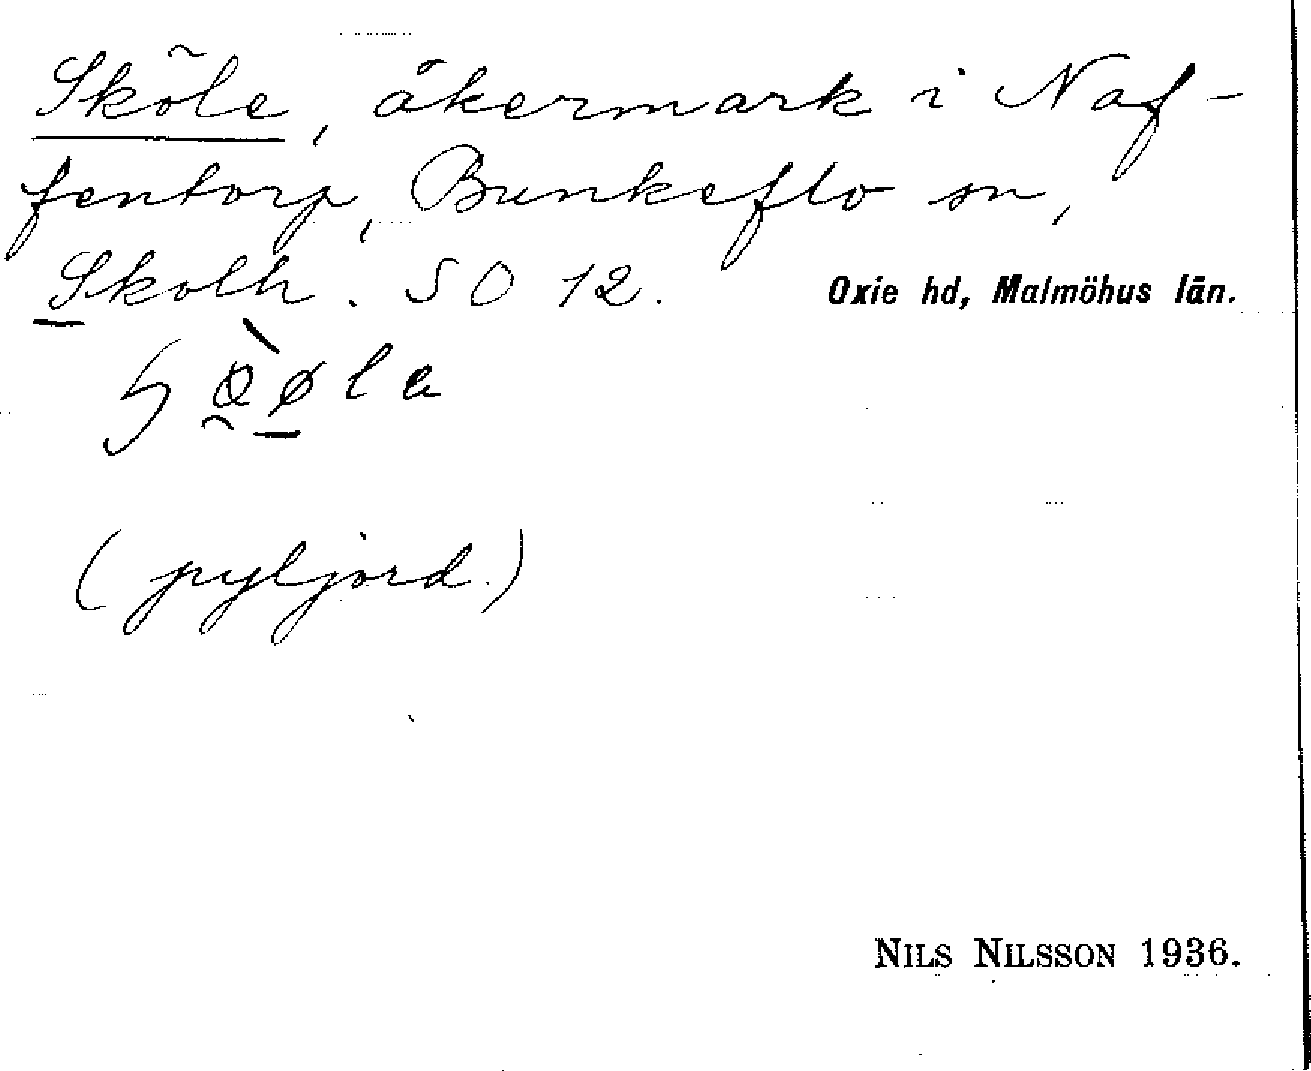 Sköle, åkermark i Naf-
fentorp, Bunkeflo sn,
Skolh. SO 12. Oxie hd, Malmöhus län.
(pyljord.)
NILS NILSSON 1936.